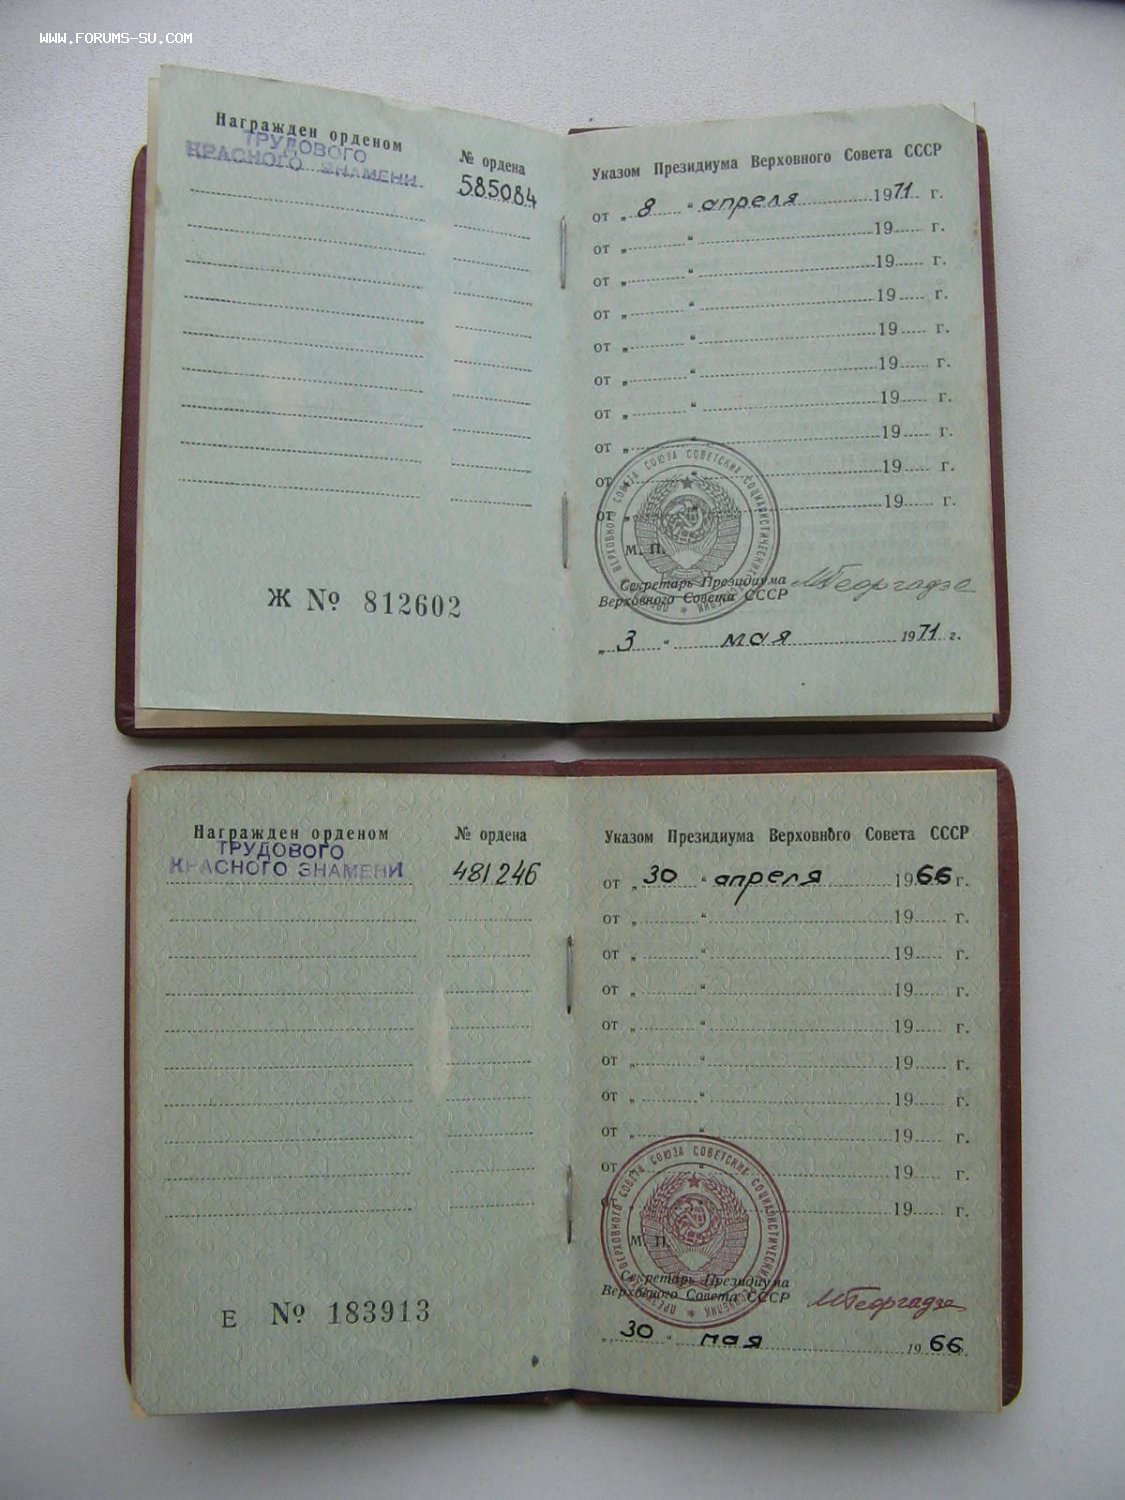 WWW.FORUMS-SU.COM
Награжден орденом
№ ордена
ТРУДОВОГО
КРАСНОГО ЗНАМЕНИ
585084
Ж № 812602
Указом Президиума Верховного Совета СССР
от „ 8 “ апреля 1971 г.
от „ “ 19 г.
от „ “ 19 г.
от „ “ 19 г.
от „ “ 19 г.
от „ “ 19 г.
от „ “ 19 г.
от „ “ 19 г.
от „ “ 19 г.
от „ “ 19 г.
ПРЕЗИДИУМ ВЕРХОВНОГО СОВЕТА СОЮЗА СОВЕТСКИХ СОЦИАЛИСТИЧЕСКИХ РЕСПУБЛИК
М. П.
Секретарь Президиума
Верховного Совета СССР
МГеоргадзе
„ 3 “ мая 1971 г.
Награжден орденом
№ ордена
ТРУДОВОГО
КРАСНОГО ЗНАМЕНИ
481246
Е № 183913
Указом Президиума Верховного Совета СССР
от „ 30 “ апреля 1966 г.
от „ “ 19 г.
от „ “ 19 г.
от „ “ 19 г.
от „ “ 19 г.
от „ “ 19 г.
от „ “ 19 г.
от „ “ 19 г.
от „ “ 19 г.
от „ “ 19 г.
ПРЕЗИДИУМ ВЕРХОВНОГО СОВЕТА СОЮЗА СОВЕТСКИХ СОЦИАЛИСТИЧЕСКИХ РЕСПУБЛИК
М. П.
Секретарь Президиума
Верховного Совета СССР
МГеоргадзе
„ 30 “ мая 1966 г.